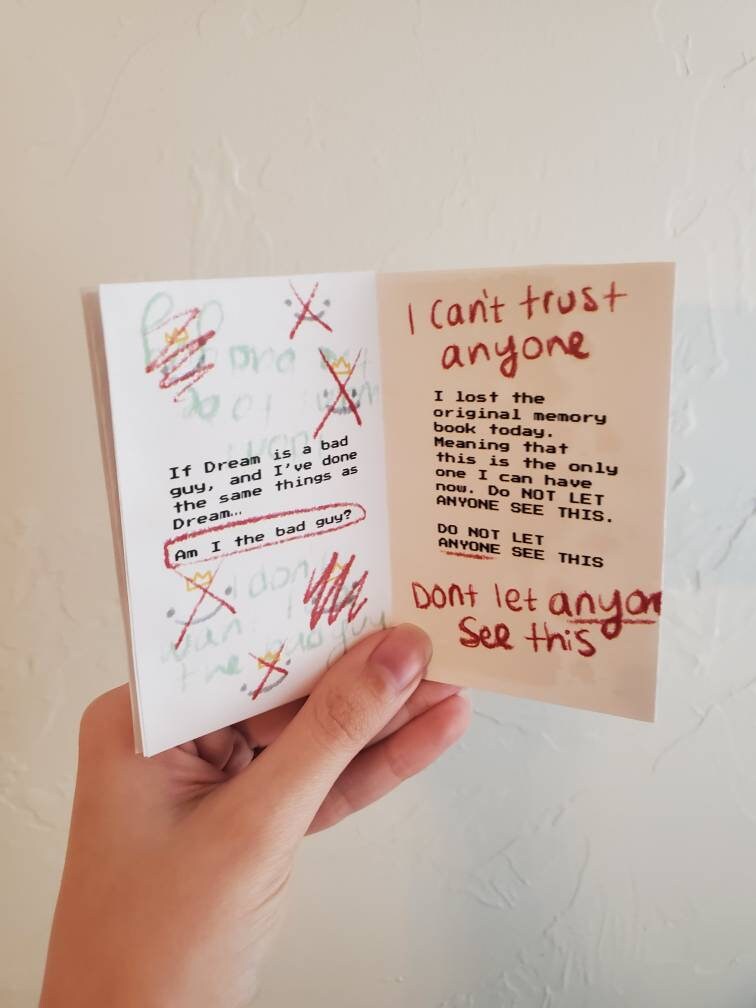 If Dream is a bad
guy, and I've done
the same things as
Dream...
Am I the bad guy?
I don't
want
the bad guy
I can't trust
anyone
I lost the
original memory
book today.
Meaning that
this is the only
one I can have
now. Do NOT LET
ANYONE SEE THIS.
DO NOT LET
ANYONE SEE THIS
Dont let anyon
See this